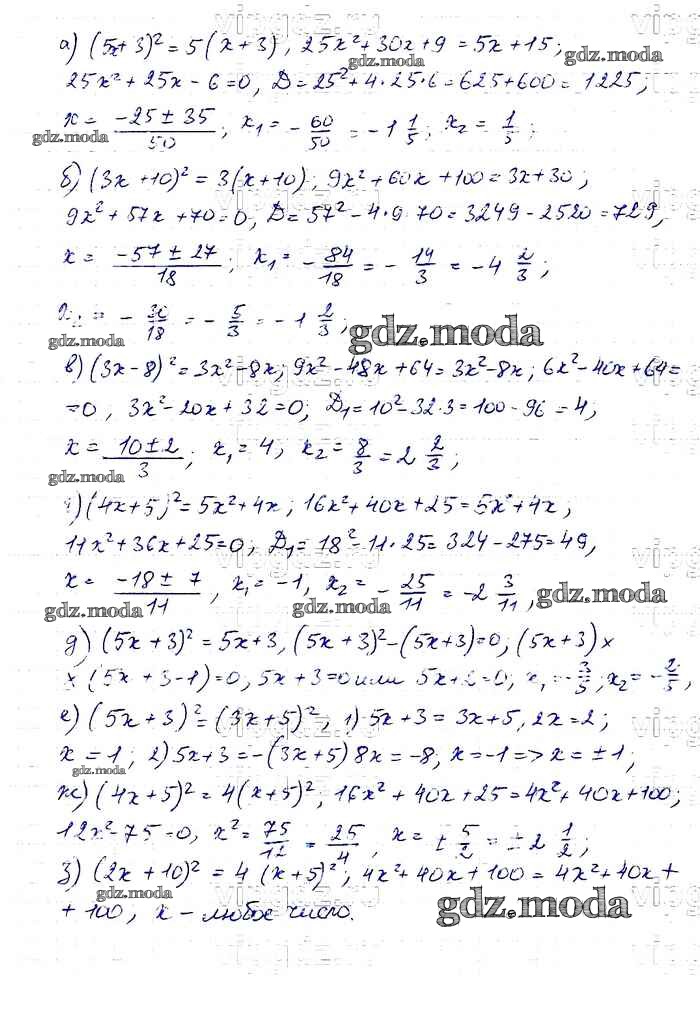 а) (5x+3)² = 5(x+3), 25x²+30x+9 = 5x+15;
25x²+25x-6=0, D=25²+4·25·6=625+600=1225;
x = (-25 ± 35)/50; x₁ = -60/50 = -1 1/5; x₂ = 1/5;
gdz.moda
б) (3x+10)² = 3(x+10), 9x²+60x+100=3x+30;
9x²+57x+70=0, D=57²-4·9·70=3249-2520=729,
x = (-57 ± 27)/18; x₁ = -84/18 = -14/3 = -4 2/3;
gdz.moda
= -30/18 = -5/3 = -1 2/3;
gdz.moda
в) (3x-8)² = 3x²-8x; 9x²-48x+64=3x²-8x; 6x²-40x+64=
=0, 3x²-20x+32=0; D₁=10²-32·3=100-96=4;
x = (10±2)/3; x₁=4; x₂=8/3=2 2/3;
gdz.moda
(4x+5)²=5x²+4x; 16x²+40x+25=5x²+4x;
11x²+36x+25=0; D₁=18²-11·25=324-275=49,
x = (-18 ± 7)/11, x₁=-1, x₂=-25/11=-2 3/11,
gdz.moda gdz.moda gdz.moda
д) (5x+3)²=5x+3, (5x+3)²-(5x+3)=0, (5x+3)×
×(5x+3-1)=0, 5x+3=0 или 5x+2=0, x₁=-3/5; x₂=-2/5,
е) (5x+3)²=(3x+5)², 1) 5x+3=3x+5, 2x=2;
x=1; 2) 5x+3=-(3x+5) 8x=-8, x=-1 => x=±1;
gdz.moda
ж) (4x+5)²=4(x+5)², 16x²+40x+25=4x²+40x+100;
12x²-75=0, x²=75/12=25/4, x=±5/2=±2 1/2;
з) (2x+10)²=4(x+5)², 4x²+40x+100=4x²+40x+
gdz.moda
+100, x - любое число.
gdz.moda